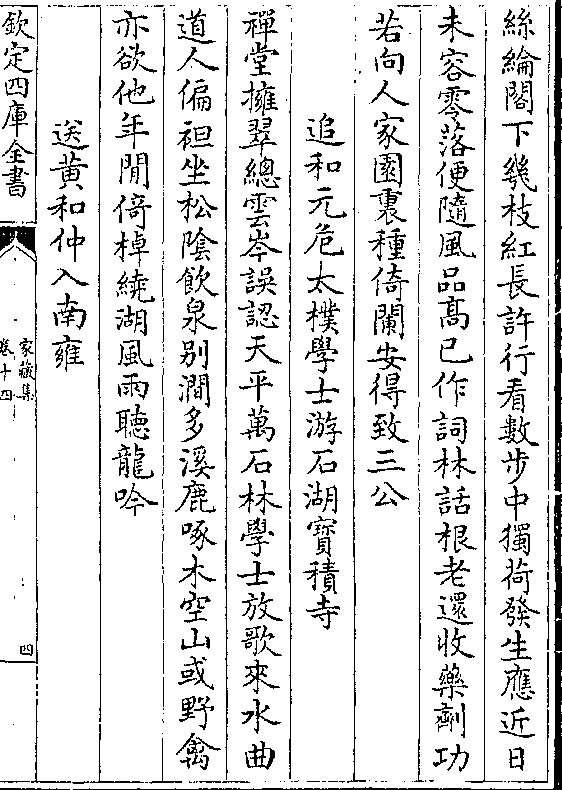 絲綸閣下幾枝紅長許行看數步中獨荷發生應近日
未容零落便隨風品高已作詞林話根老還收藥劑功
若向人家園裏種倚闌安得致三公
追和元危太樸學士游石湖寳積寺
禪堂擁翠總雲岑誤認天平萬石林學士放歌來水曲
道人偏袒坐松陰飲泉别澗多溪鹿啄木空山或野禽
亦欲他年閒倚棹繞湖風雨聽龍吟
送黄和仲入南雍
欽定四庫全書
家藏集
卷十四
四